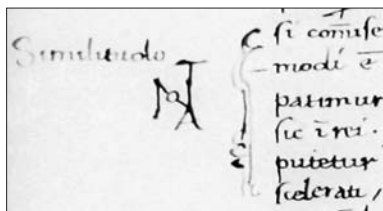 Similitudo
si com̄ise
modi ē
patimur
sic ī rei.
putetur
scelerati,